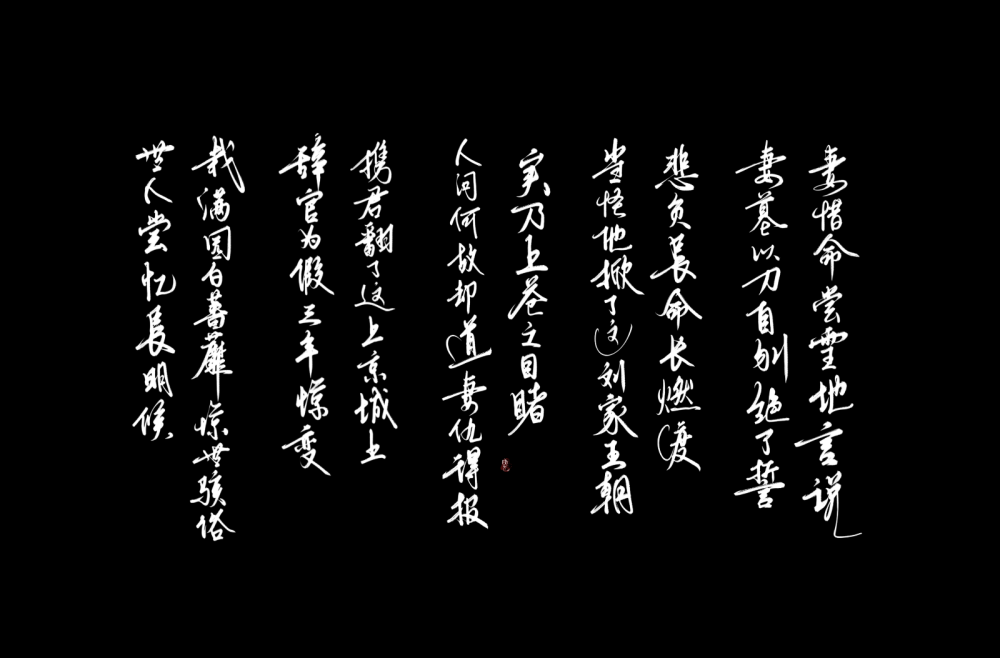 妻惜命尝雪地言说
妻墓以刀自刎绝了誓
悲负長命长燃渡
当怪他掀了这刘家王朝
实乃上苍之目睹
人问何故却道妻仇得报
携君翻了这上京城土
辞官为假三年惊变
栽满园白蔷蘼惊世骇俗
世人尝忆長明候